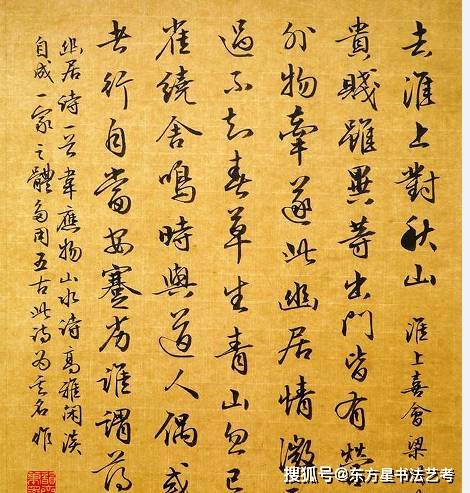 去淮上對秋山 淮上喜會梁
貴賤雖異等出門皆有營
外物牽遂此幽居情微
過不知春草生青山忽已
雀繞舍鳴時與道人偶或
者行自當安蹇劣誰謂薄
幽居诗一首韋應物山水诗高雅闲淡
自成一家之體多用五古此诗为其名作
搜狐号@东方星书法艺考